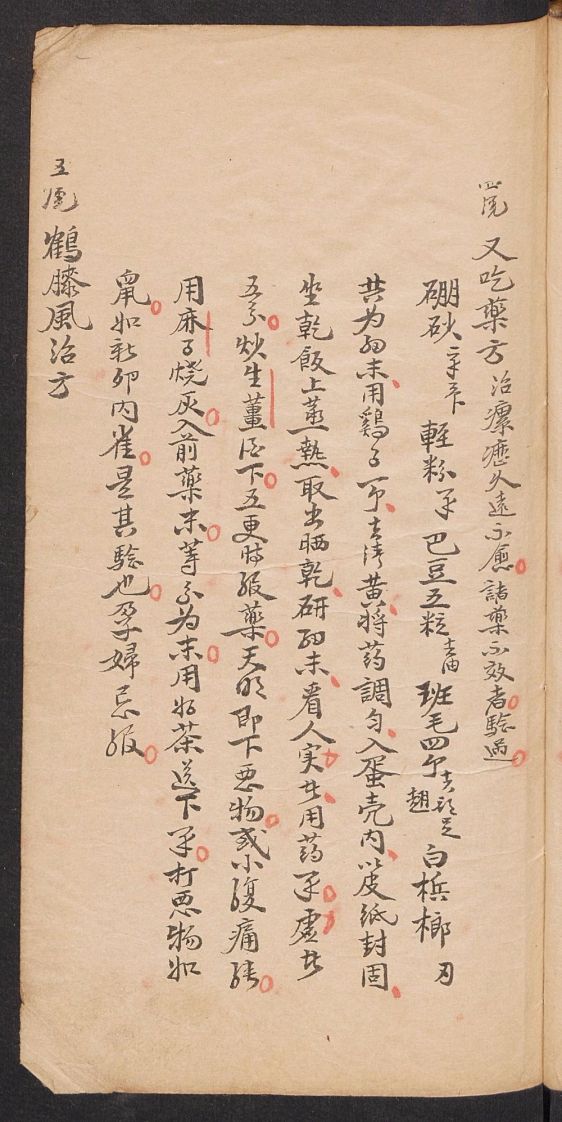 四凴 又吃藥方 治瘰癧久遠不愈諸藥不效者騐過
硼砂 輕粉 巴豆五粒去油 班毛四个去頭足翅 白梹榔
共为細末用鷄子一个去清黄將药調匀入蛋壳内以皮紙封固
坐乾飯上蒸熱取出晒乾研細末看人实者用药 虚者
五分炒生薑酒下五更時服藥天明即下悪物或小腹痛
用麻子燒灰入前藥末等分为末用好茶送下 打悪物如
鼠如新卵内雀是其騐也孕婦忌服
五凴 鶴膝風治方